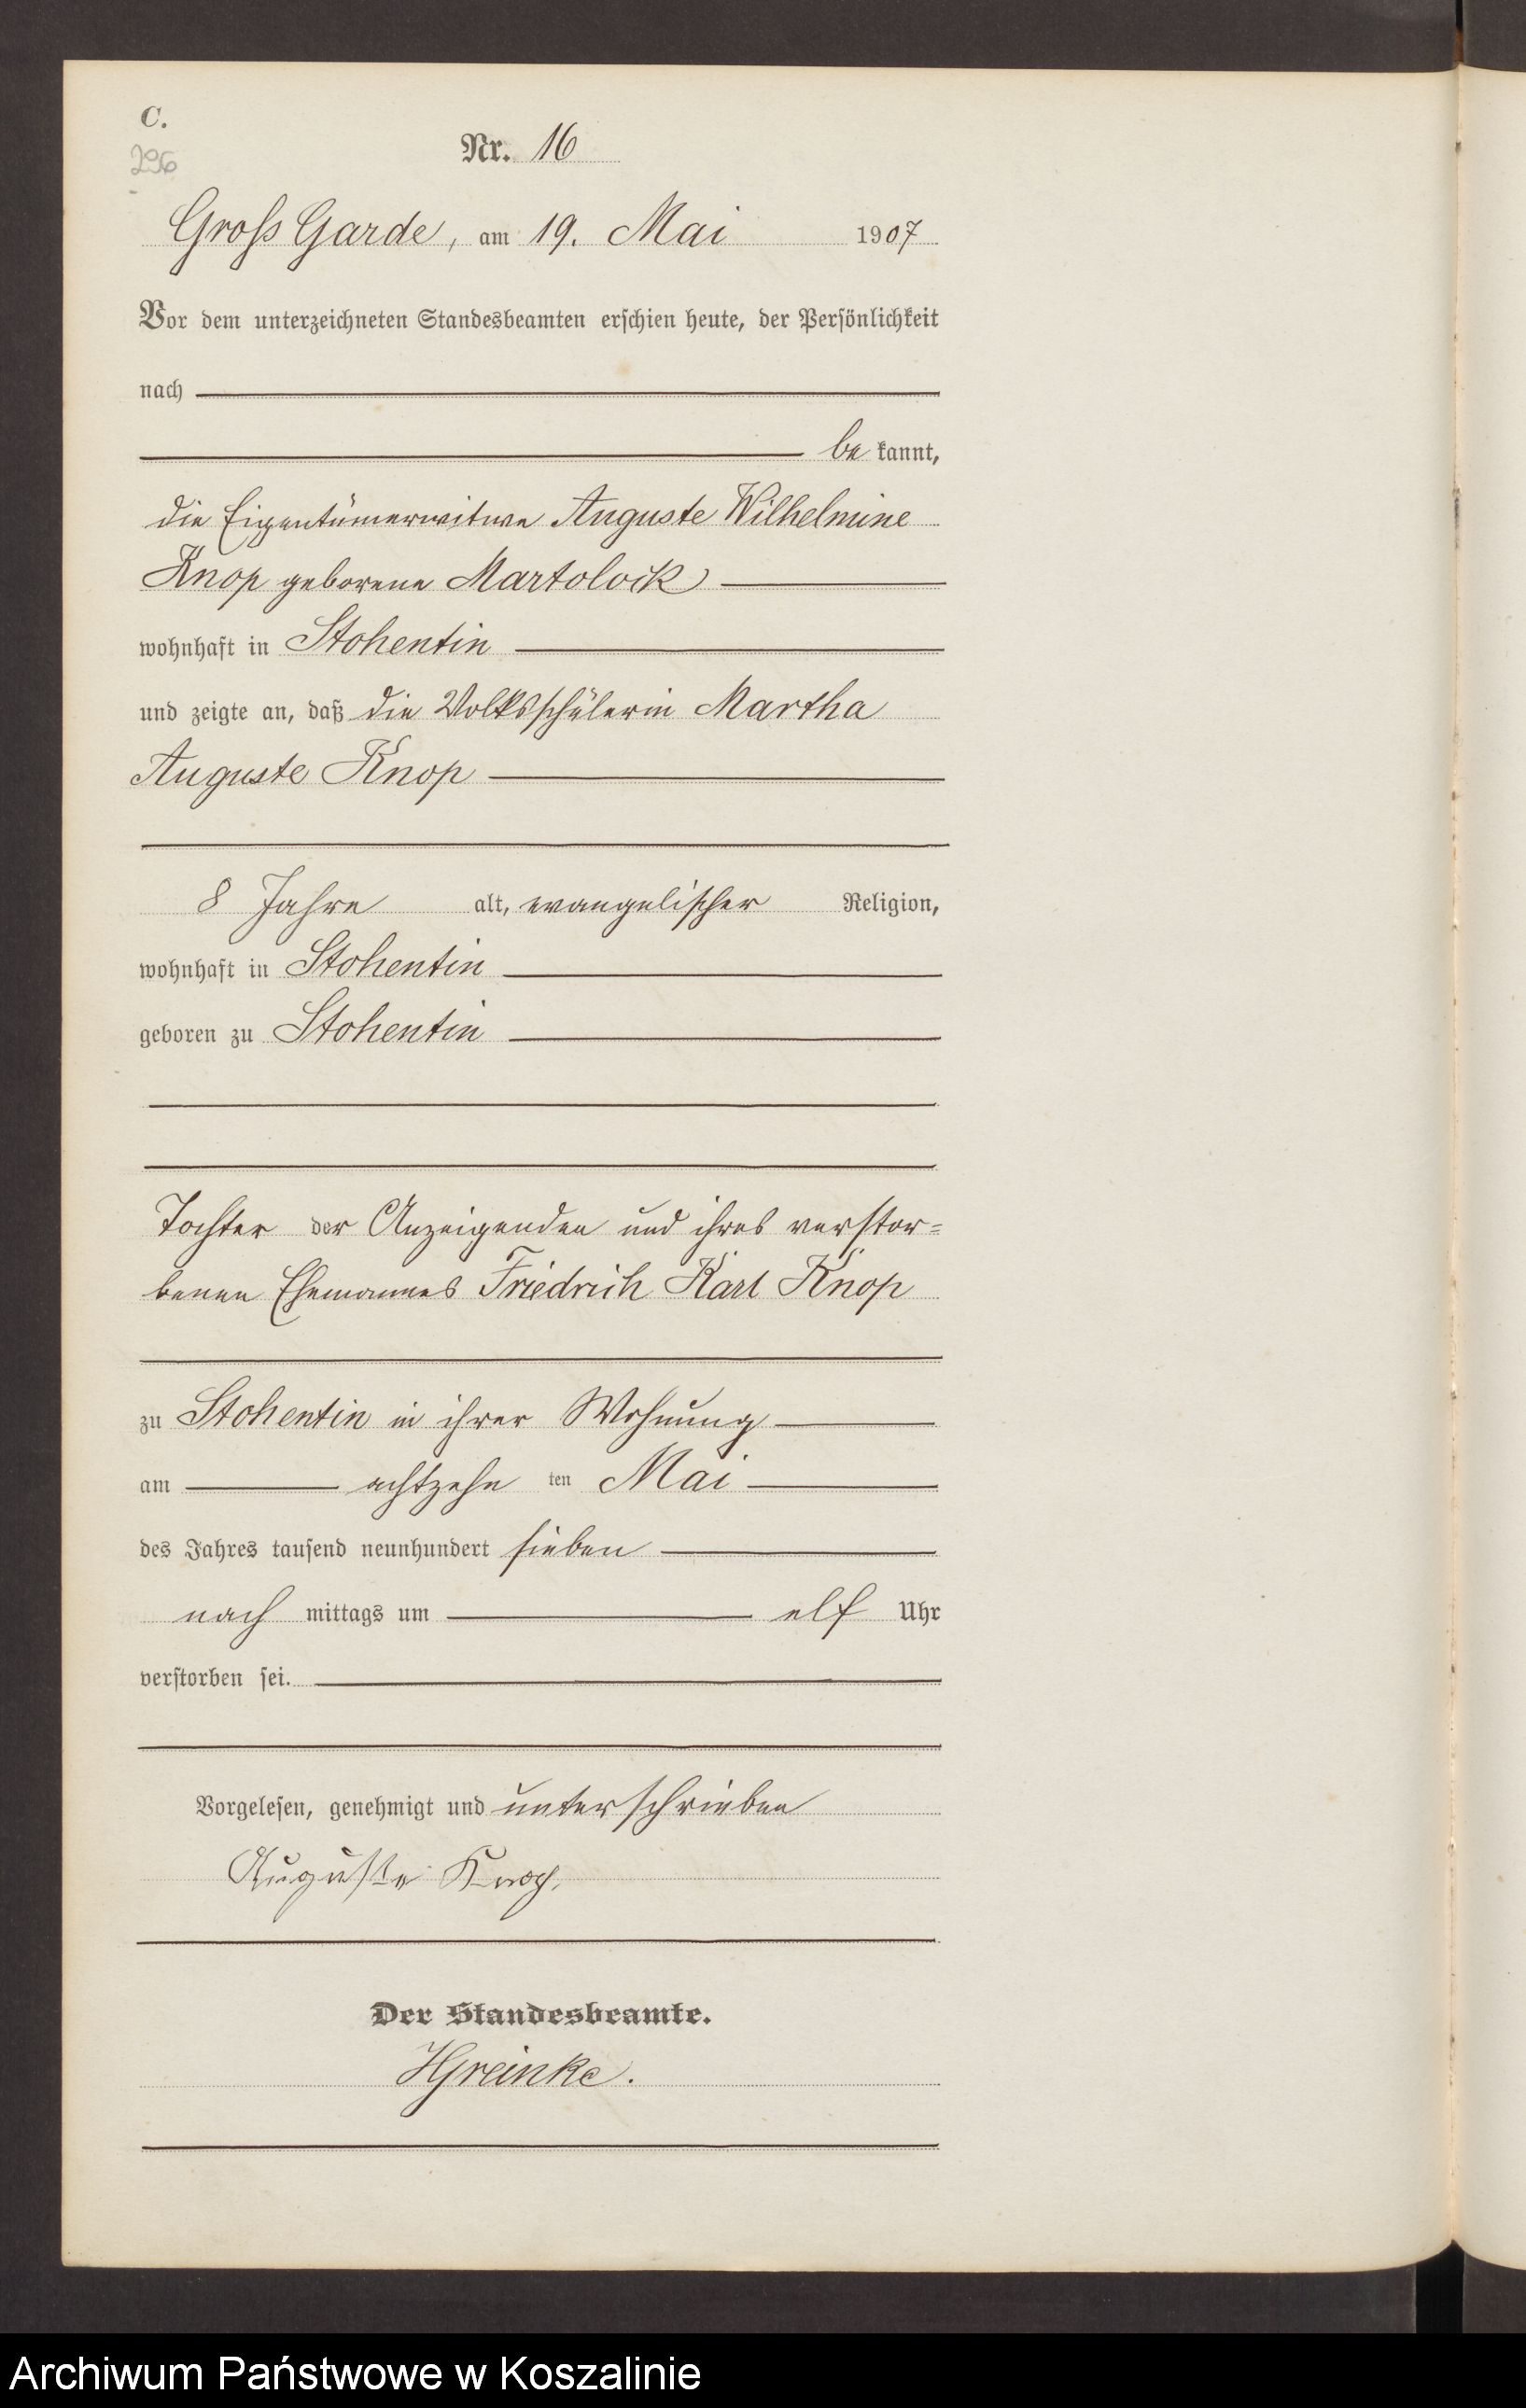 C.
296
Nr. 16
Gross Garde, am 19. Mai 1907
Vor dem unterzeichneten Standesbeamten erschien heute, der Persönlichkeit
nach
be kannt,
die Eigentümerwitwe Auguste Wilhelmine
Knop geborene Martolock
wohnhaft in Stohentin
und zeigte an, daß die Volksschülerin Martha
Auguste Knop
8 Jahre alt, evangelischer Religion,
wohnhaft in Stohentin
geboren zu Stohentin
Tochter der Anzeigenden und ihres verstor=
benen Ehemannes Friedrich Karl Knop
zu Stohentin in ihrer Wohnung
am achtzehn ten Mai
des Jahres tausend neunhundert sieben
nach mittags um elf Uhr
verstorben sei.
Vorgelesen, genehmigt und unterschrieben
Auguste Knop.
Der Standesbeamte.
HGreinke.
Archiwum Państwowe w Koszalinie